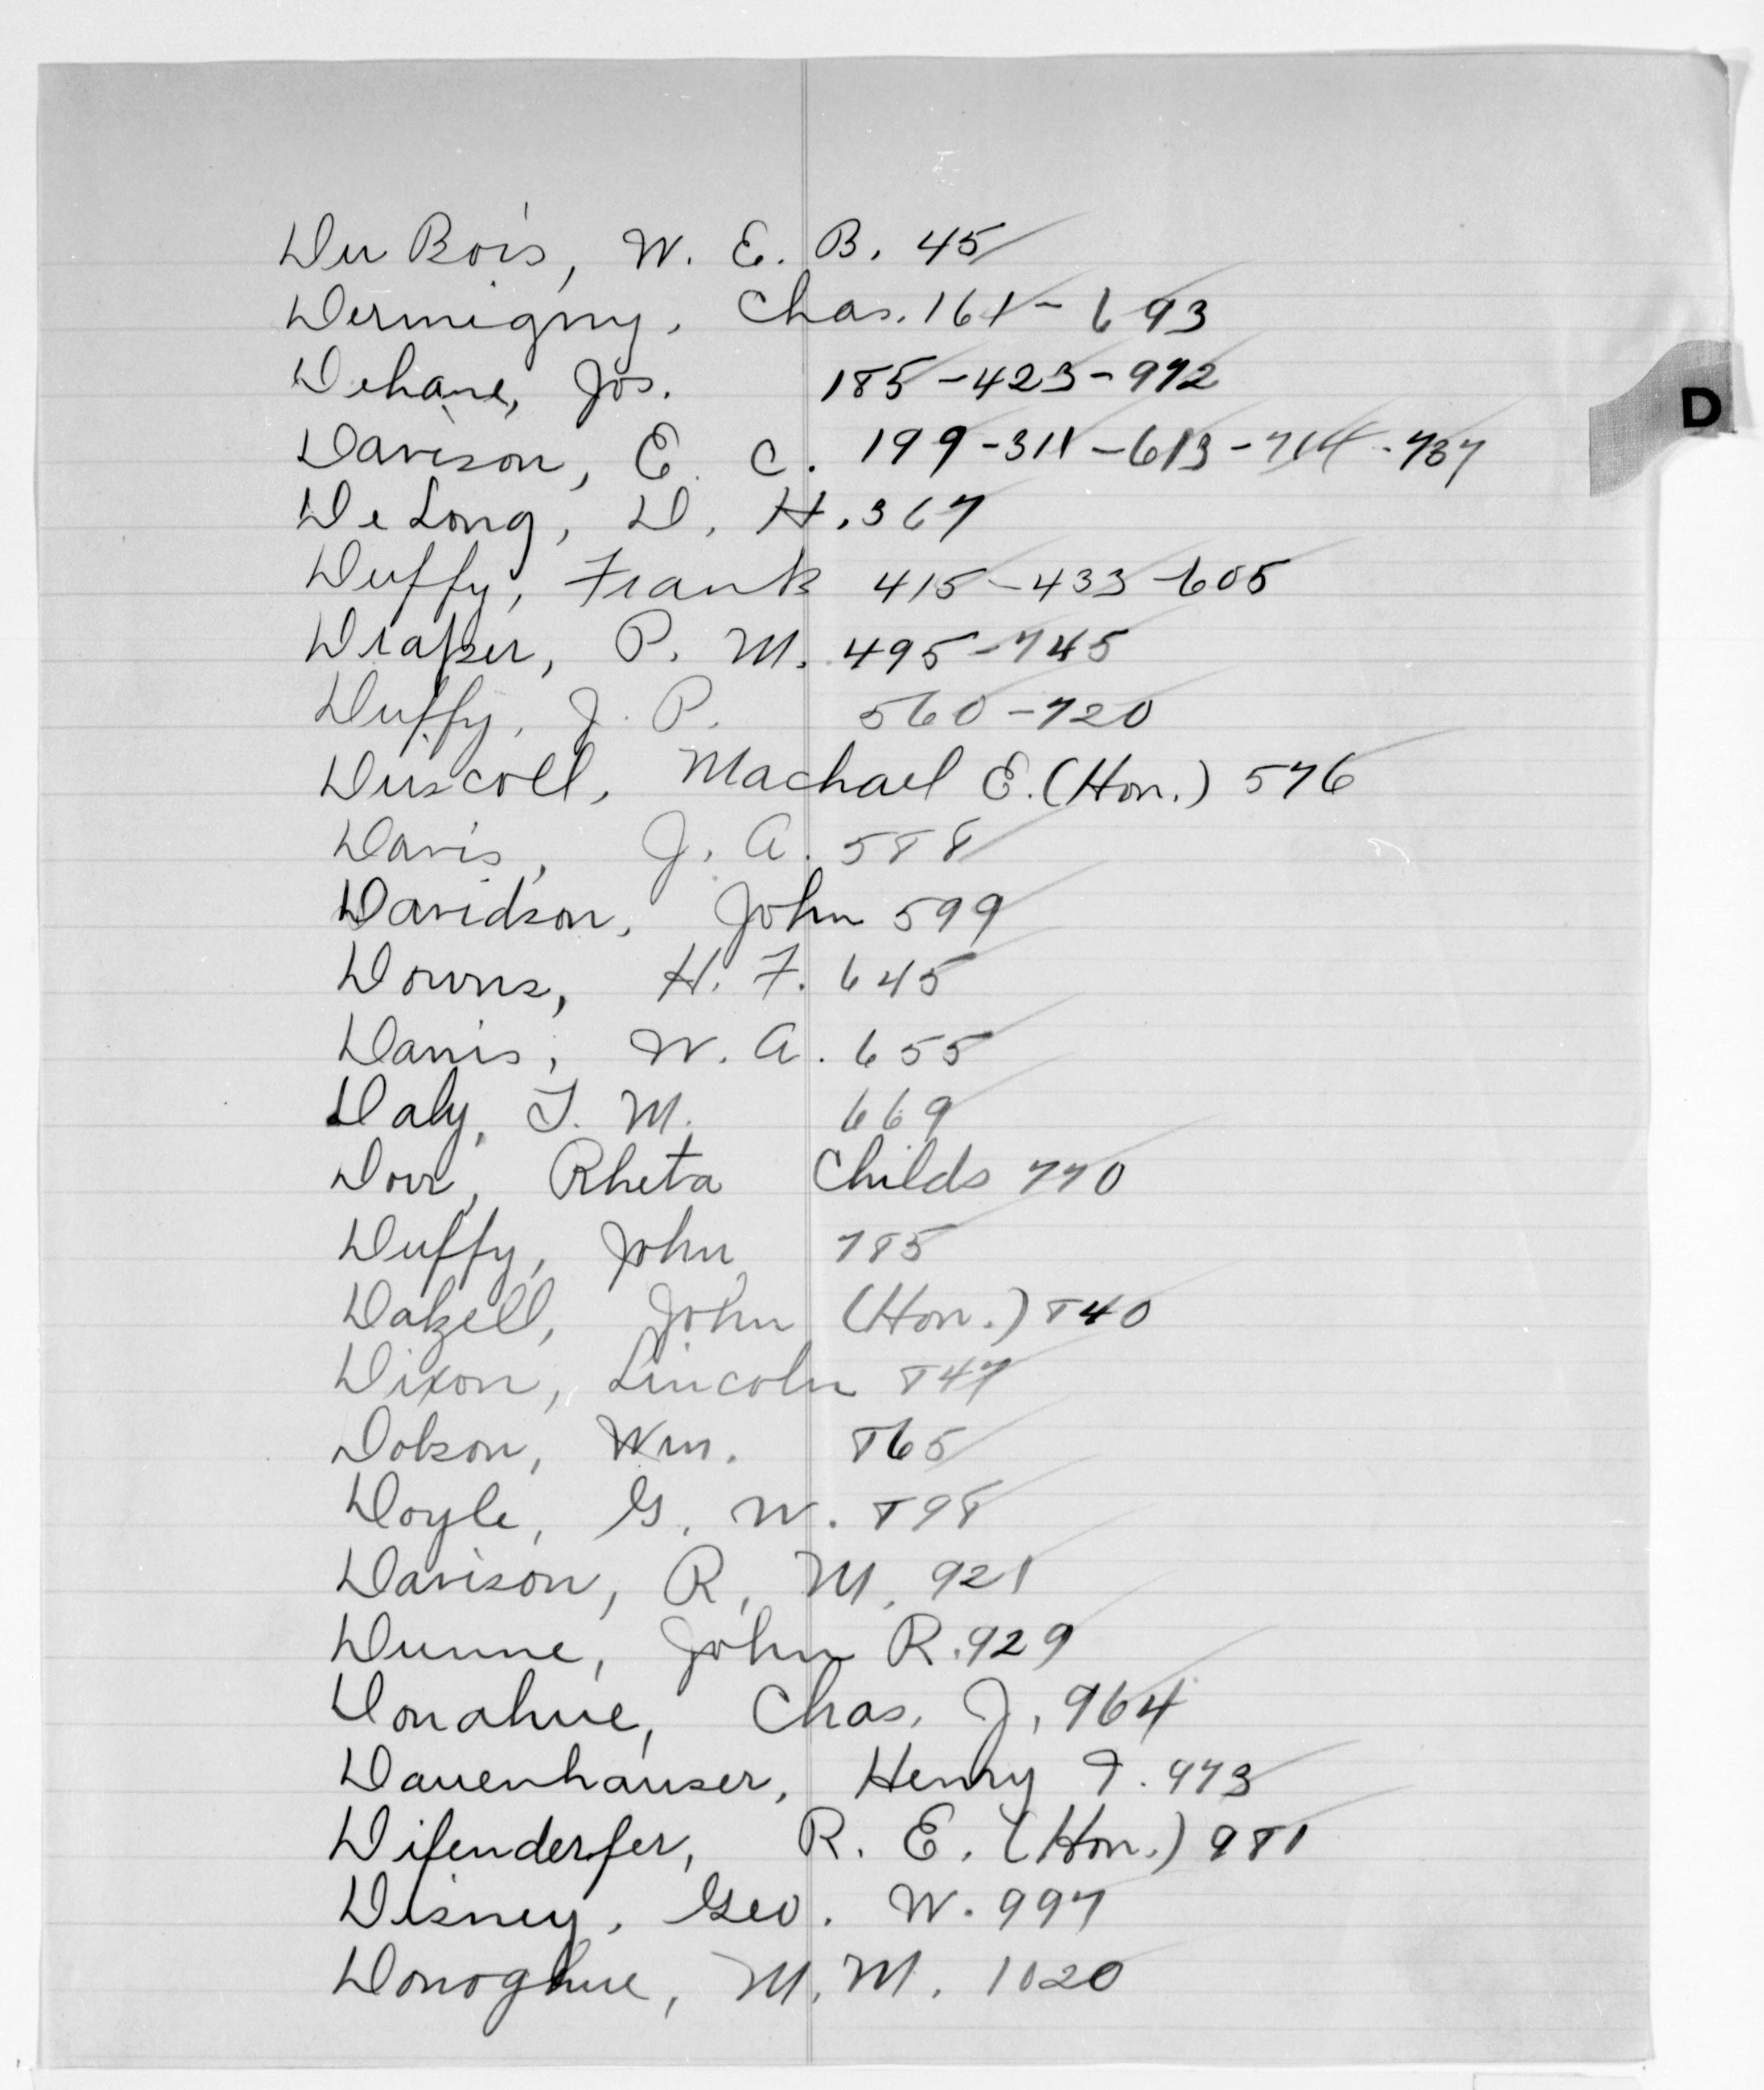 Du Bois, W. E. B. 45
Dermigny, Chas. 161 - 693
Dehane, Jos. 185 - 423 - 972
D
Davison, E. C. 199 - 311 - 613 - 714 - 737
De Long, D. H. 367
Duffy, Frank 415 - 433 - 605
Draper, P. M. 495 - 745
Duffy, J. P. 560 - 720
Driscoll, Machael E. (Hon.) 576
Davis, J. A. 588
Davidson, John 599
Downs, H. F. 645
Davis, W. A. 655
Daly, T. M. 669
Dorr, Rheta Childs 770
Duffy, John 785
Dalzell, John (Hon.) 840
Dixon, Lincoln 847
Dobson, Wm. 865
Doyle, G. W. 898
Davison, R. M. 921
Dunne, John R. 929
Donahue, Chas. J. 964
Dauenhauser, Henry F. 973
Difenderfer, R. E. (Hon.) 981
Disney, Geo. W. 997
Donoghue, M. M. 1020